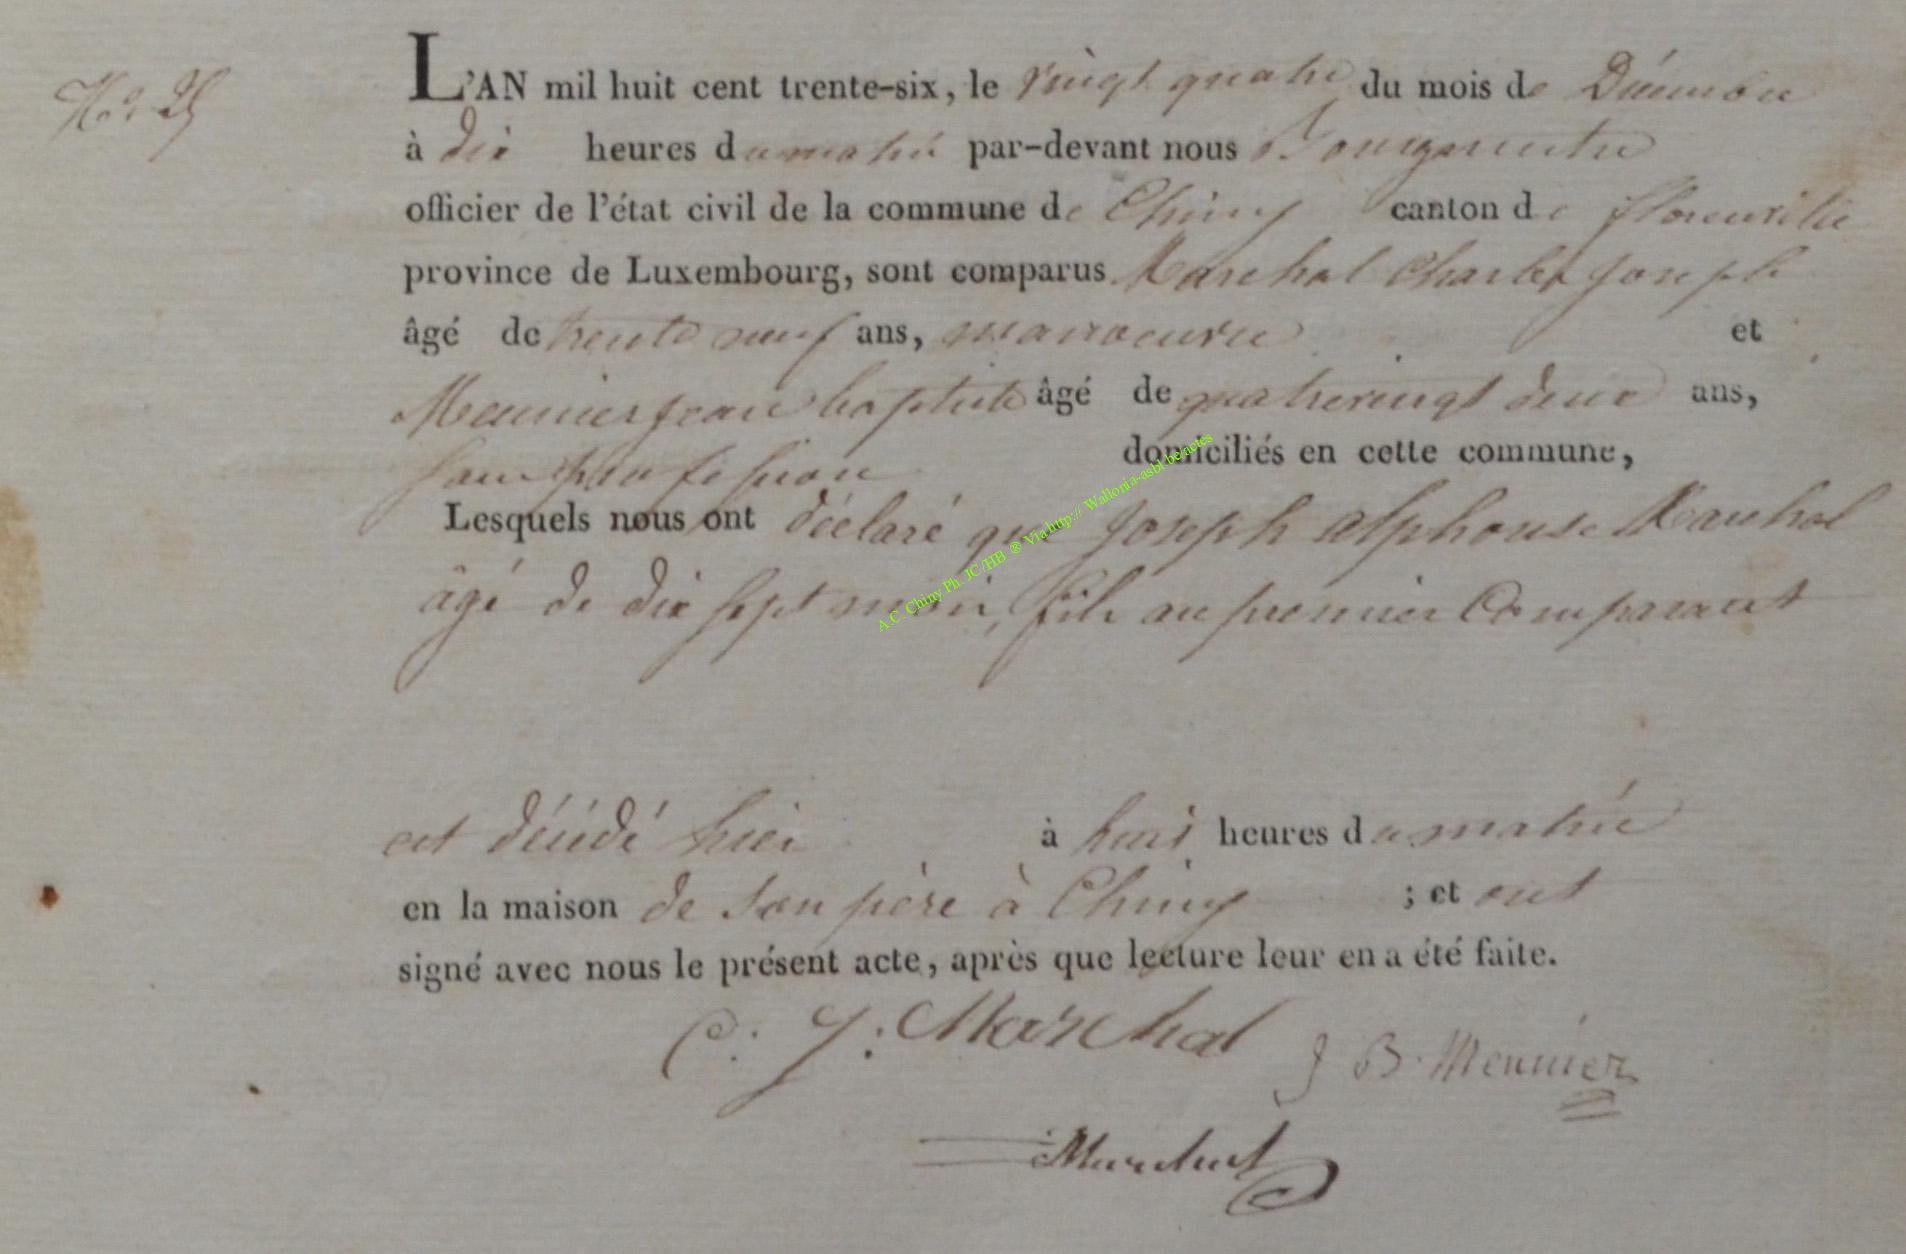 N.o 25
L'AN mil huit cent trente-six, le vingt quatre du mois de Décembre
à dix heures du matin par-devant nous Bourgmestre
officier de l'état civil de la commune de Chiny canton de florenville
province de Luxembourg, sont comparus Marchal Charles Joseph
âgé de trente neuf ans, manoeuvre et
Meunier jean baptiste âgé de quatrevingt deux ans,
sans profession domiciliés en cette commune,
Lesquels nous ont déclaré que Joseph alphonse Marchal
âgé de dix sept mois, fils au premier Comparant
est décédé hier à huit heures du matin
en la maison de son père à Chiny ; et ont
signé avec nous le présent acte, après que lecture leur en a été faite.
C: J: Marchal
J B. Meunier
A.C. Chiny Ph. JC/HB ® Via http:// Wallonia-asbl.be/actes